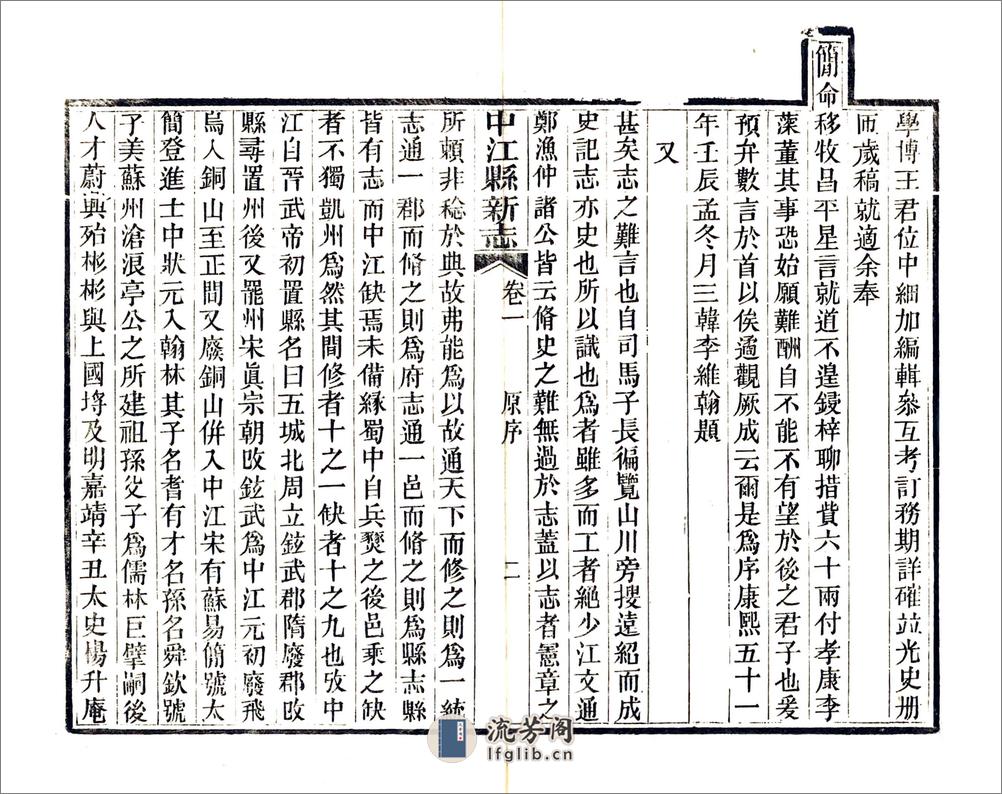 學博王君位中細加編輯叅互考訂務期詳確竝光史册
而歲稿就適余奉
簡命移牧昌平星言就道不遑鋟梓聊措費六十兩付孝康李
藻董其事恐始願難酬自不能不有望於後之君子也爰
預弁數言於首以俟遹觀厥成云爾是爲序康熙五十一
年壬辰孟冬月三韓李維翰題
又
甚矣志之難言也自司馬子長徧覽山川旁搜遠紹而成
史記志亦史也所以識也爲者雖多而工者絕少江文通
鄭漁仲諸公皆云脩史之難無過於志蓋以志者憲章之
中江縣新志
卷一
原序
二
所賴非稔於典故弗能爲以故通天下而修之則爲一統
志通一郡而脩之則爲府志通一邑而脩之則爲縣志縣
皆有志而中江缺焉未備緣蜀中自兵燹之後邑乘之缺
者不獨凱州爲然其間修者十之一缺者十之九也攷中
江自晉武帝初置縣名曰五城北周立鉉武郡隋廢郡攺
縣尋置州後又罷州宋眞宗朝攺鉉武爲中江元初廢飛
烏入銅山至正間又廢銅山併入中江宋有蘇易簡號太
簡登進士中狀元入翰林其子名耆有才名孫名舜欽號
子美蘇州滄浪亭公之所建祖孫父子爲儒林巨擘嗣後
人才蔚興殆彬彬與上國埒及明嘉靖辛丑太史楊升庵
流芳阁
lfglib.cn